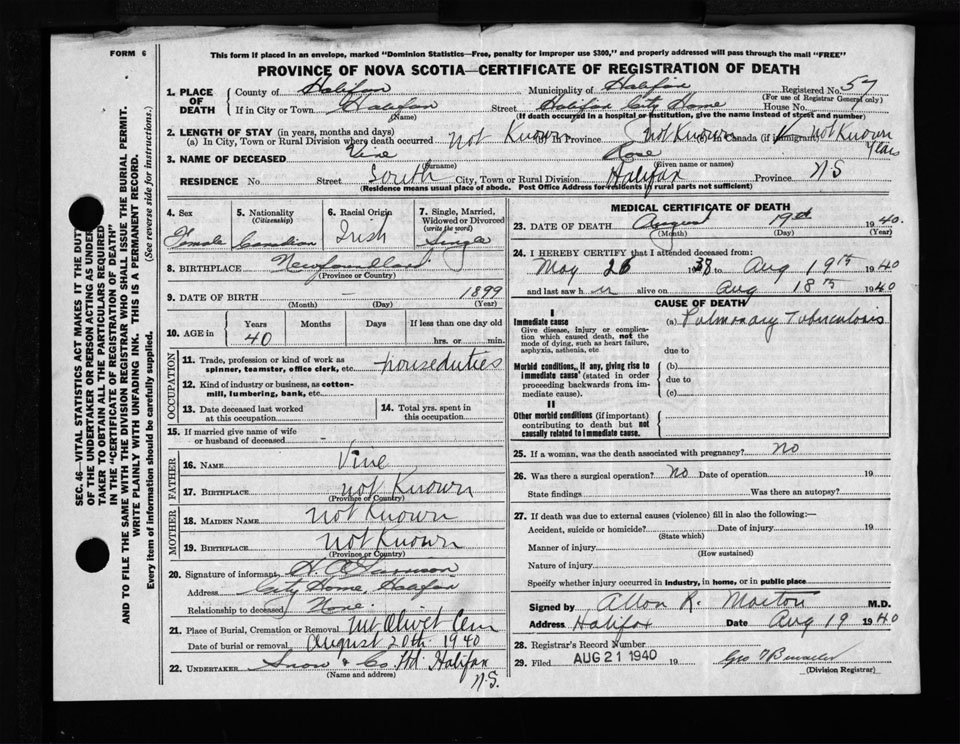 FORM 6
This form if placed in an envelope, marked "Dominion Statistics—Free, penalty for improper use $300," and properly addressed will pass through the mail "FREE"
PROVINCE OF NOVA SCOTIA—CERTIFICATE OF REGISTRATION OF DEATH
1. PLACE OF DEATH County of Halifax Municipality of Halifax Registered No. 57
(For use of Registrar General only)
If in City or Town Halifax Street Halifax City Home House No.
(Name) (If death occurred in a hospital or institution, give the name instead of street and number)
2. LENGTH OF STAY (in years, months and days)
(a) In City, Town or Rural Division where death occurred not Known (b) In Province not Known (c) In Canada (if immigrant) not Known
Years
3. NAME OF DECEASED Vine Rose
(Surname) (Given name or names)
RESIDENCE No. Street South City, Town or Rural Division Halifax Province NS
(Residence means usual place of abode. Post Office Address for residents in rural parts not sufficient)
4. Sex 5. Nationality (Citizenship) 6. Racial Origin 7. Single, Married, Widowed or Divorced (write the word)
Female Canadian Irish Single
8. BIRTHPLACE Newfoundland
(Province or Country)
9. DATE OF BIRTH – 1899
(Month) (Day) (Year)
10. AGE in Years Months Days If less than one day old
40 hrs. or min.
OCCUPATION
11. Trade, profession or kind of work as spinner, teamster, office clerk, etc. houseduties
12. Kind of industry or business, as cotton-mill, lumbering, bank, etc.
13. Date deceased last worked at this occupation 14. Total yrs. spent in this occupation.
15. If married give name of wife or husband of deceased –
FATHER
16. NAME Vine
17. BIRTHPLACE not Known
(Province or Country)
MOTHER
18. MAIDEN NAME not Known
19. BIRTHPLACE not Known
(Province or Country)
20. Signature of informant
Address City Home, Halifax
Relationship to deceased None.
21. Place of Burial, Cremation or Removal Mt Olivet Cem
Date of burial or removal August 20th 1940
22. UNDERTAKER Snow & Co Ltd. Halifax
(Name and address) N.S.
MEDICAL CERTIFICATE OF DEATH
23. DATE OF DEATH August 19th 1940
(Month) (Day) (Year)
24. I HEREBY CERTIFY that I attended deceased from:
May 26 1938 to Aug 19th 1940
and last saw h er alive on Aug 18th 1940
CAUSE OF DEATH
I
Immediate cause (a) Pulmonary Tuberculosis
Give disease, injury or complication which caused death, not the mode of dying, such as heart failure, asphyxia, asthenia, etc.
due to
Morbid conditions, if any, giving rise to immediate cause (stated in order proceeding backwards from immediate cause).
(b)
due to
(c)
II
Other morbid conditions (if important) contributing to death but not causally related to immediate cause.
25. If a woman, was the death associated with pregnancy? no
26. Was there a surgical operation? no Date of operation 19
State findings Was there an autopsy?
27. If death was due to external causes (violence) fill in also the following:—
Accident, suicide or homicide? Date of injury 19
(State which)
Manner of injury
(How sustained)
Nature of injury
Specify whether injury occurred in industry, in home, or in public place
Signed by Allon R. M.D.
Address Halifax Date Aug 19 1940
28. Registrar's Record Number
29. Filed AUG 21 1940 19
(Division Registrar)
SEC. 46—VITAL STATISTICS ACT MAKES IT THE DUTY
OF THE UNDERTAKER OR PERSON ACTING AS UNDER
TAKER TO OBTAIN ALL THE PARTICULARS REQUIRED
IN THE "CERTIFICATE OF REGISTRATION OF DEATH"
AND TO FILE THE SAME WITH THE DIVISION REGISTRAR WHO SHALL ISSUE THE BURIAL PERMIT.
WRITE PLAINLY WITH UNFADING INK. THIS IS A PERMANENT RECORD.
Every item of information should be carefully supplied. (See reverse side for instructions.)